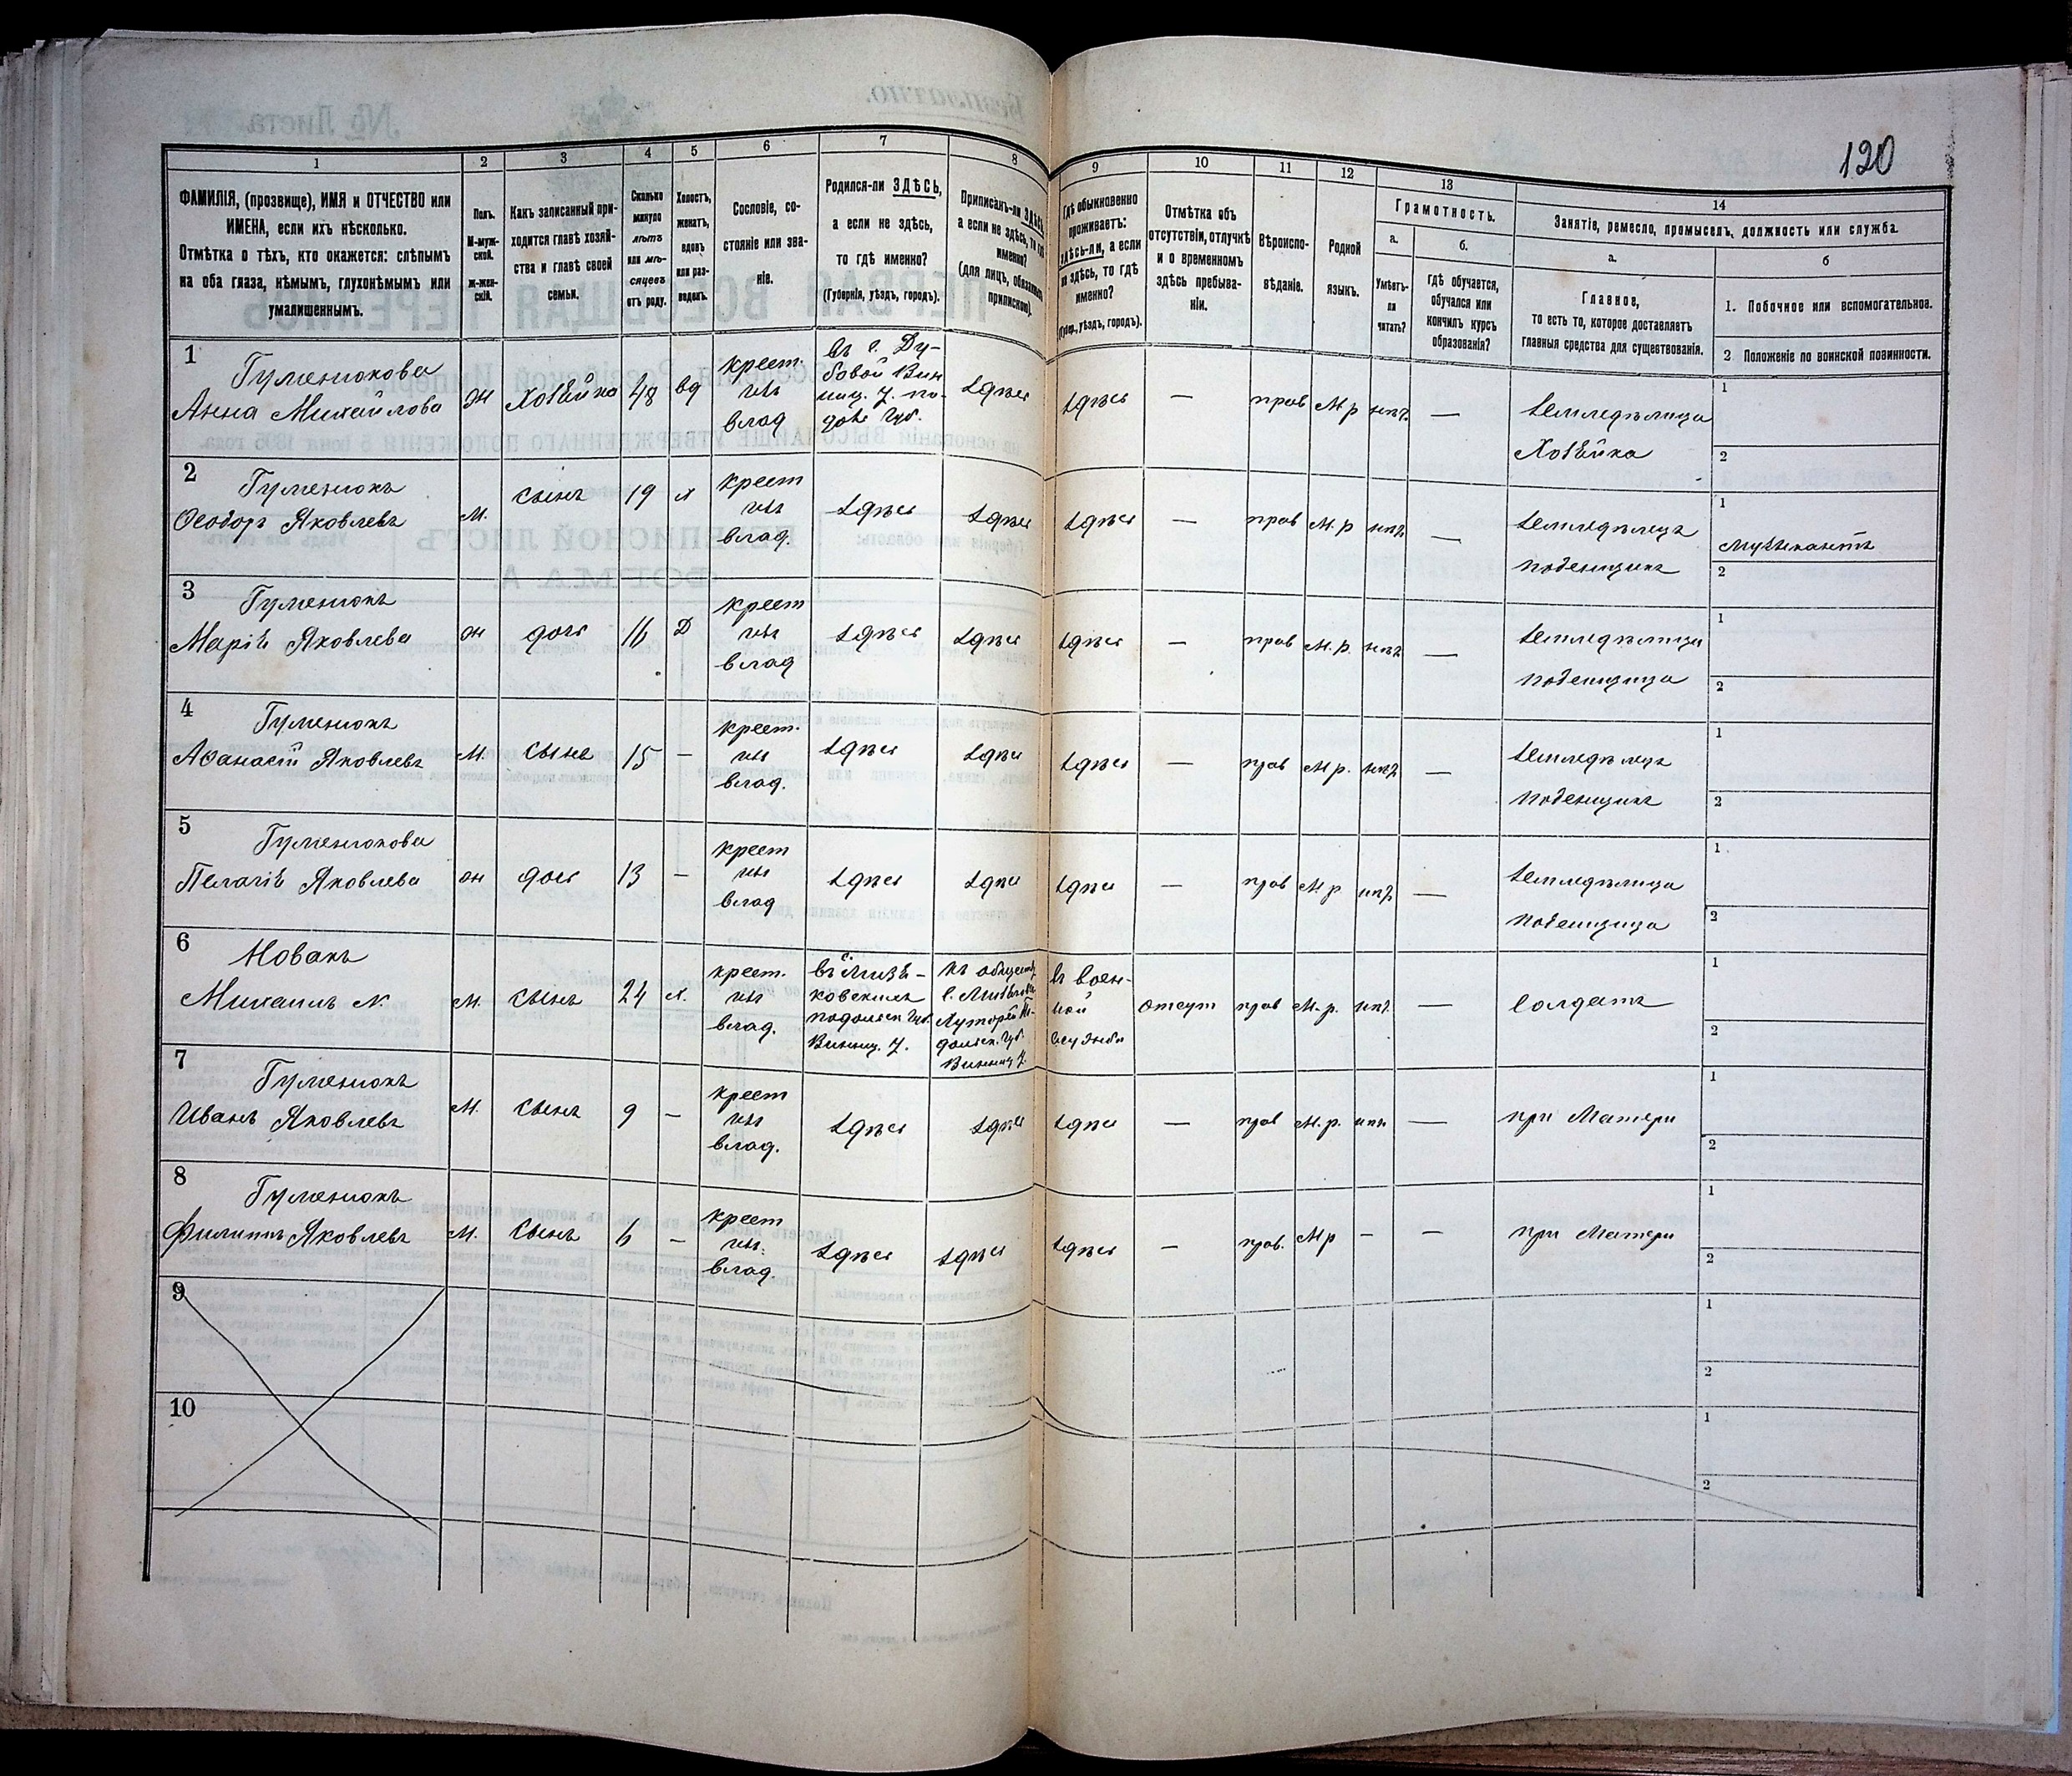 120
1
2
3
4
5
6
7
8
9
10
11
12
13
14
ФАМИЛІЯ, (прозвище), ИМЯ и ОТЧЕСТВО или
ИМЕНА, если ихъ нѣсколько.
Отмѣтка о тѣхъ, кто окажется: слѣпымъ
на оба глаза, нѣмымъ, глухонѣмымъ или
умалишеннымъ.
Полъ.
М-муж-
ской.
ж-жен-
скій.
Какъ записанный при-
ходится главѣ хозяй-
ства и главѣ своей
семьи.
Сколько
минуло
лѣтъ
или мѣ-
сяцевъ
отъ роду.
Холостъ,
женатъ,
вдовъ
или раз-
веденъ.
Сословіе, со-
стояніе или зва-
ніе.
Родился-ли ЗДѢСЬ,
а если не здѣсь,
то гдѣ именно?
(Губернія, уѣздъ, городъ).
Приписанъ-ли ЗДѢСЬ,
а если не здѣсь, то гдѣ
именно?
(для лицъ, обязанныхъ
припискою).
Гдѣ обыкновенно
проживаетъ:
здѣсь-ли, а если
не здѣсь, то гдѣ
именно?
(Губер., уѣздъ, городъ).
Отмѣтка объ
отсутствіи, отлучкѣ
и о временномъ
здѣсь пребыва-
ніи.
Вѣроиспо-
вѣданіе.
Родной
языкъ.
Грамотность.
а.
Умѣетъ-
ли
читать?
б.
гдѣ обучается,
обучался или
кончилъ курсъ
образованія?
Занятіе, ремесло, промыселъ, должность или служба.
а.
Главное,
то есть то, которое доставляетъ
главныя средства для существованія.
б
1. Побочное или вспомогательное.
2 Положеніе по воинской повинности.
1
Гуменюкова
Анна Михайлова
ж
Хозяйка
48
вд
крест.
изъ
влад
въ с. Ду-
бовой Вин
ниц. У. По-
дол. Губ.
здѣсь
здѣсь
—
прав
М р
нѣт
—
земледѣлица
Хозяйка
1
2
2
Гуменюкъ
Ѳеодоръ Яковлевъ
М.
сынъ
19
х
крест
изъ
влад.
здѣсь
здѣсь
здѣсь
—
прав
М. р
нѣт
—
земледѣлецъ
поденщикъ
1
музыкантъ
2
3
Гуменюкъ
Марія Яковлева
ж
дочь
16
Д
крест
изъ
влад
здѣсь
здѣсь
здѣсь
—
прав
М. р.
нѣт
—
земледѣлица
поденщица
1
2
4
Гуменюкъ
Аѳанасій Яковлевъ
М.
сынъ
15
—
крест.
изъ
влад.
здѣсь
здѣсь
здѣсь
—
прав
М р.
нѣт
—
земледѣлецъ
поденщикъ
1
2
5
Гуменюкова
Пелагія Яковлева
ж
дочь
13
—
крест
изъ
влад
здѣсь
здѣсь
здѣсь
—
прав
М. р
нѣт
—
земледѣлица
поденщица
1
2
6
Новакъ
Михаилъ N.
М.
сынъ
24
х.
крест.
изъ
влад.
подольск Губ.
Винниц. У.
къ обществ.
дольск. Губ.
Винниц У.
въ воен-
ной
службѣ
отсут
прав
М. р.
нѣт
—
Солдатъ
1
2
7
Гуменюкъ
Иванъ Яковлевъ
М.
сынъ
9
—
крест
изъ
влад.
здѣсь
здѣсь
здѣсь
—
прав
М. р.
нѣт
—
при Матери
1
2
8
Гуменюкъ
Филиппъ Яковлевъ
М.
Сынъ
6
—
крест
изъ.
влад.
здѣсь
здѣсь
здѣсь
—
прав.
М р
—
—
при Матери
1
2
9
1
2
10
1
2